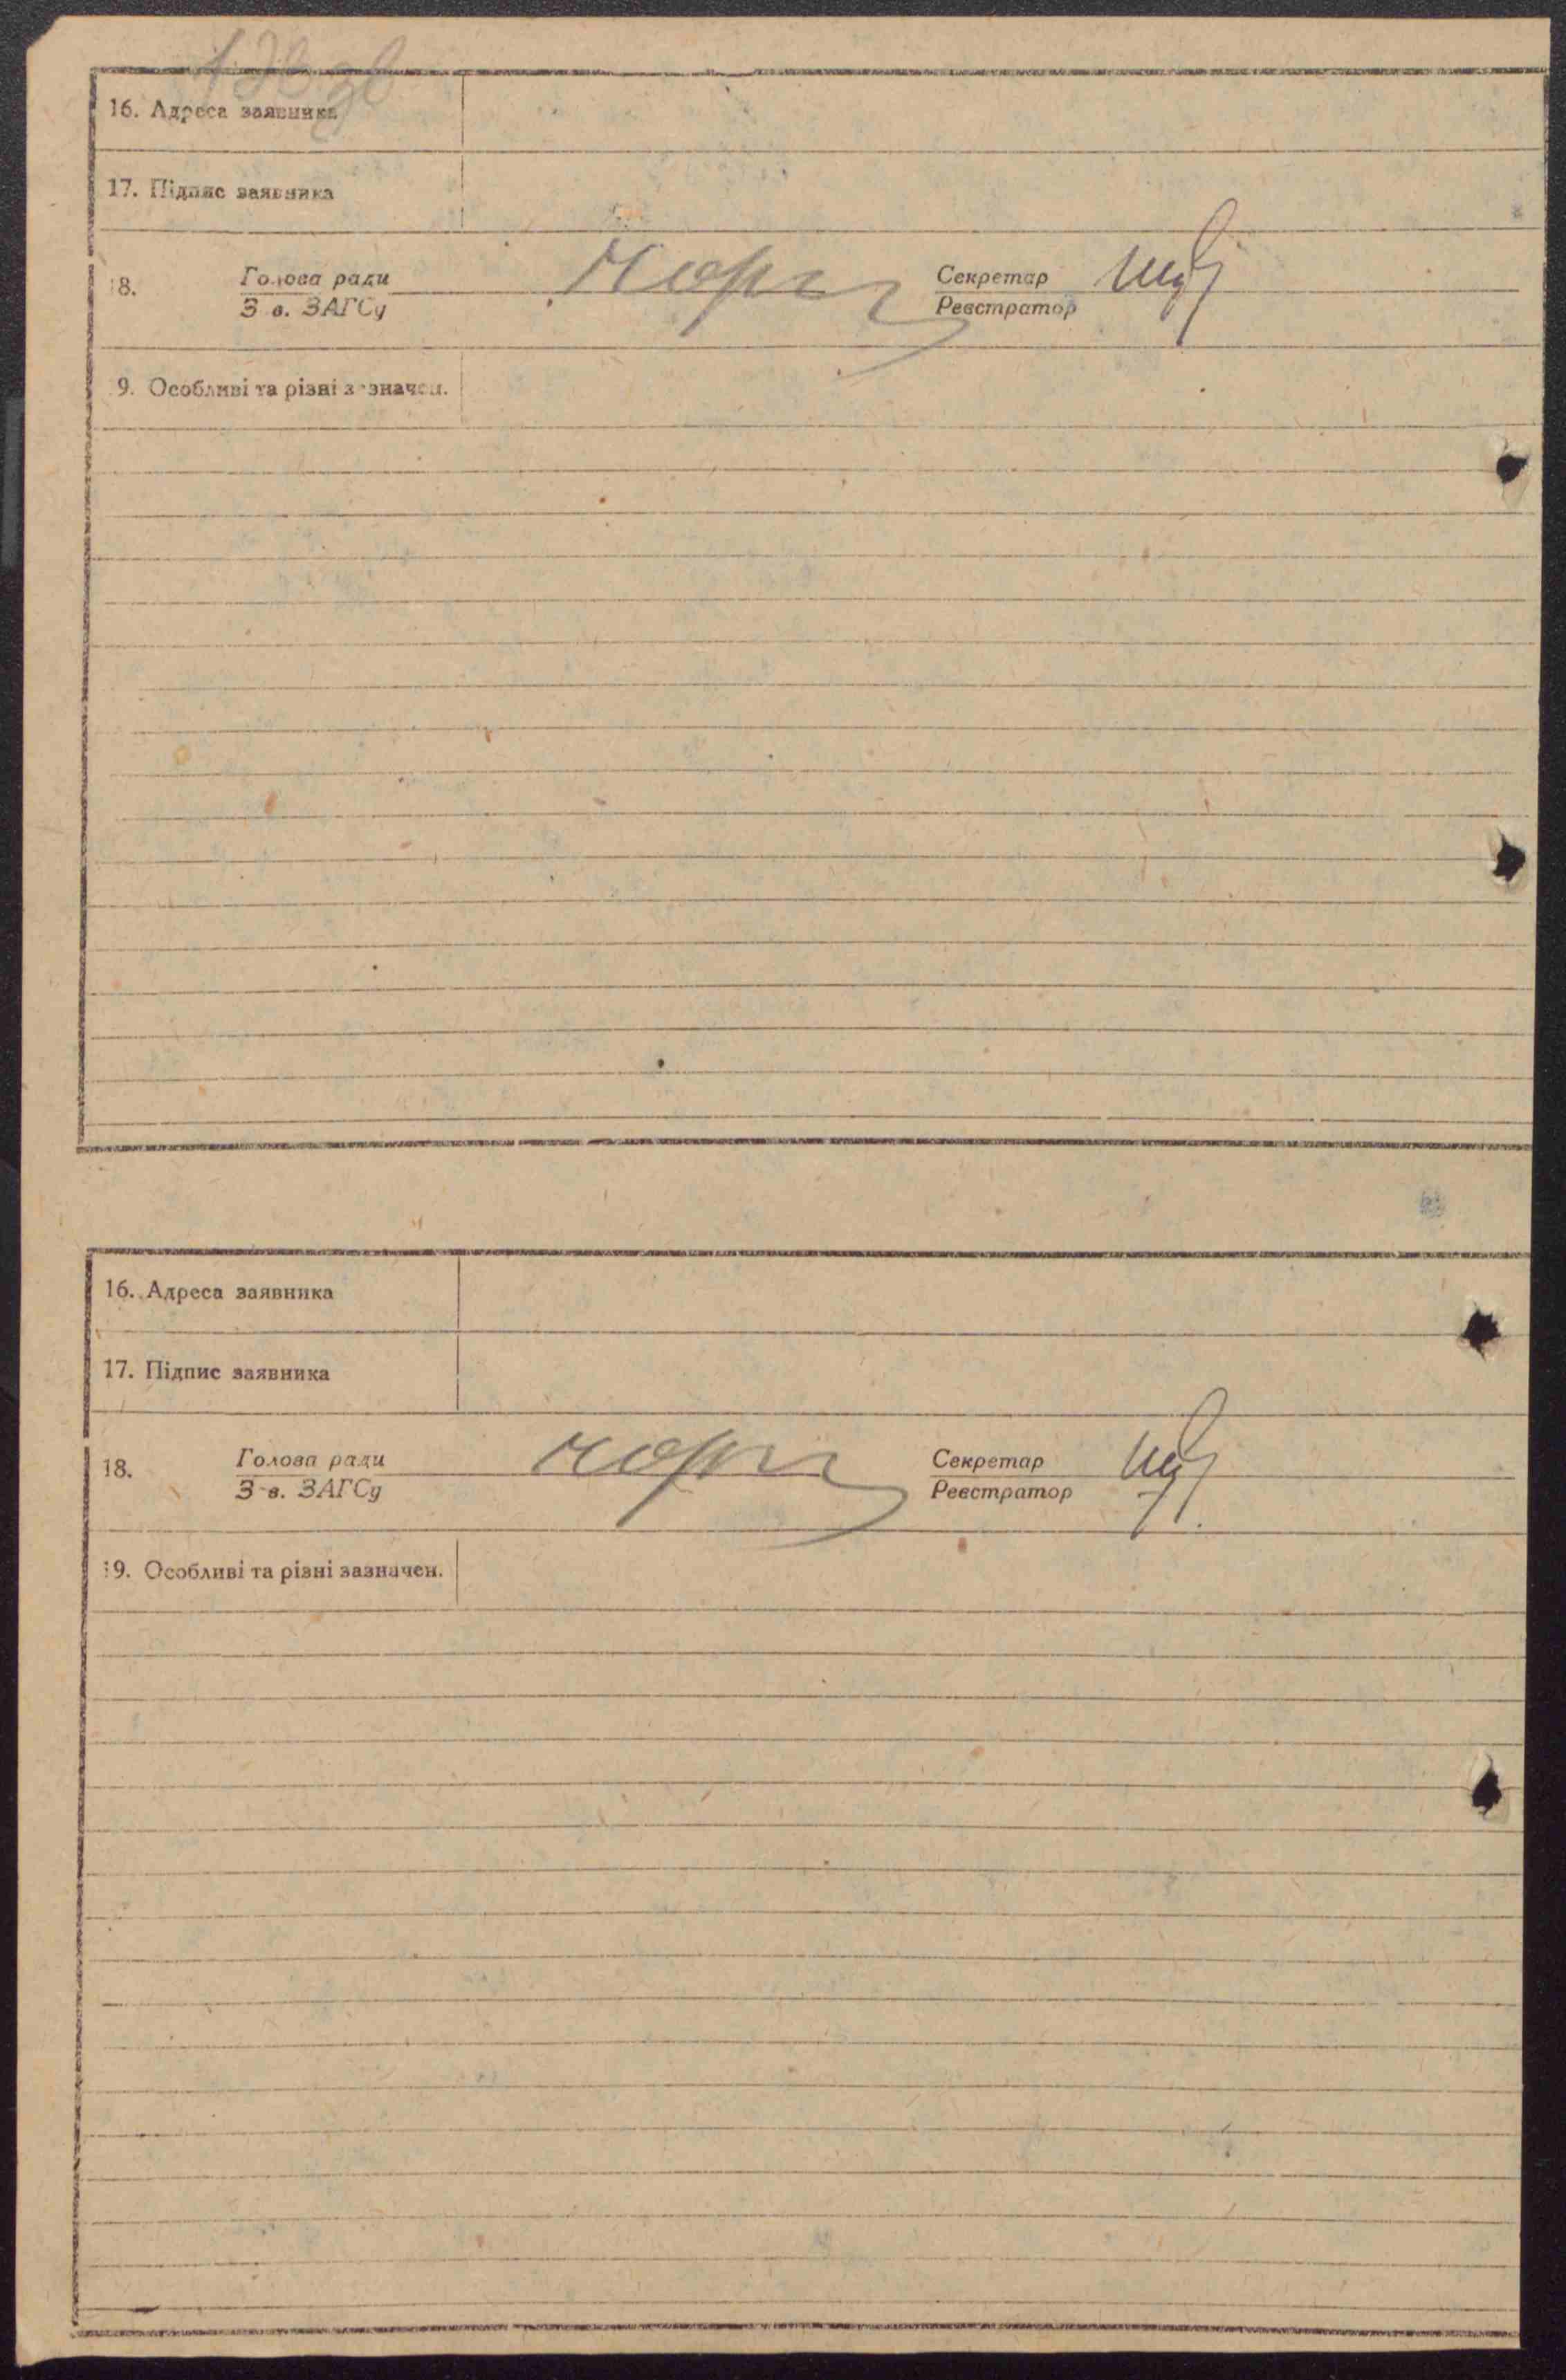 16. Адреса заявника
17. Підпис заявника
18. Голова ради Секретар
З-в. ЗАГСу Реєстратор
19. Особливі та різні зазначен.
16. Адреса заявника
17. Підпис заявника
18. Голова ради Секретар
З-в. ЗАГСу Реєстратор
19. Особливі та різні зазначен.